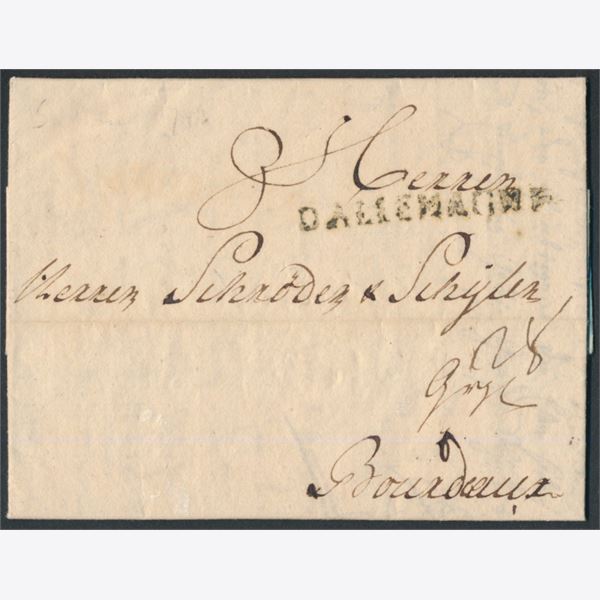 Herren
DALLEMAGNE
Herren Schröder & Schÿler
28
Bourdeaux